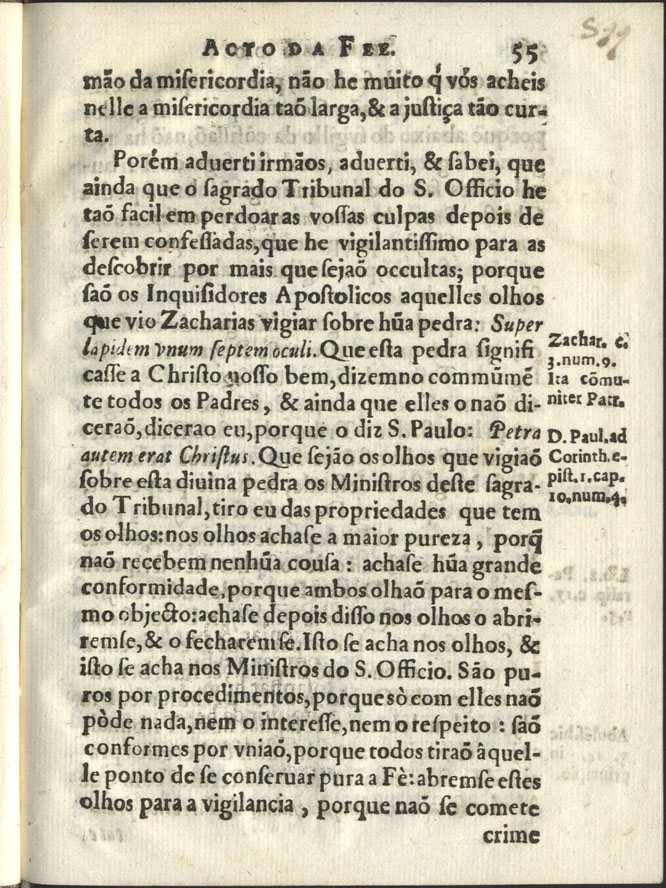 ACTO DA FEE. 55
mão da miſericordia, não he muito q̃ vós acheis
nelle a miſericordia taõ larga,& a juſtiça tão cur-
ta.
Porém aduerti irmãos, aduerti, & ſabei, que
ainda que o ſagrado Tribunal do S. Officio he
taõ facil em perdoar as voſſas culpas depois de
ſerem confeſſadas,que he vigilantiſſimo para as
deſcobrir por mais que ſejaõ occultas; porque
ſaõ os Inquiſidores Apoſtolicos aquelles olhos
que vio Zacharias vigiar ſobre hũa pedra: Super
lapidem vnum ſeptem oculi. Que eſta pedra ſignifi
caſſe a Chriſto noſſo bem, dizemno commũmẽ
te todos os Padres, & ainda que elles o naõ di-
ceraõ, dicerao eu, porque o diz S. Paulo: Petra
autem erat Chriſtus. Que ſejão os olhos que vigiaõ
ſobre eſta diuina pedra os Miniſtros deſte ſagra-
do Tribunal, tiro eu das propriedades que tem
os olhos: nos olhos achaſe a maior pureza, porq̃
naõ recebem nenhũa couſa: achaſe hũa grande
conformidade, porque ambos olhaõ para o meſ-
mo objecto: achaſe depois diſſo nos olhos o abri-
remſe, & o fecharemſe. Iſto ſe acha nos olhos, &
iſto ſe acha nos Miniſtros do S. Officio. São pu-
ros por procedimentos, porque sò com elles naõ
pòde nada, nem o intereſſe, nem o reſpeito: ſaõ
conformes por vniaõ, porque todos tiraõ âquel-
le ponto de ſe conſeruar pura a Fè: abremſe eſtes
olhos para a vigilancia, porque naõ ſe comete
crime
Zachar. c.
3. num. 9.
Ita cõmu-
niter Patr.
D. Paul. ad
Corinth. e-
piſt. 1. cap.
10. num. 4.